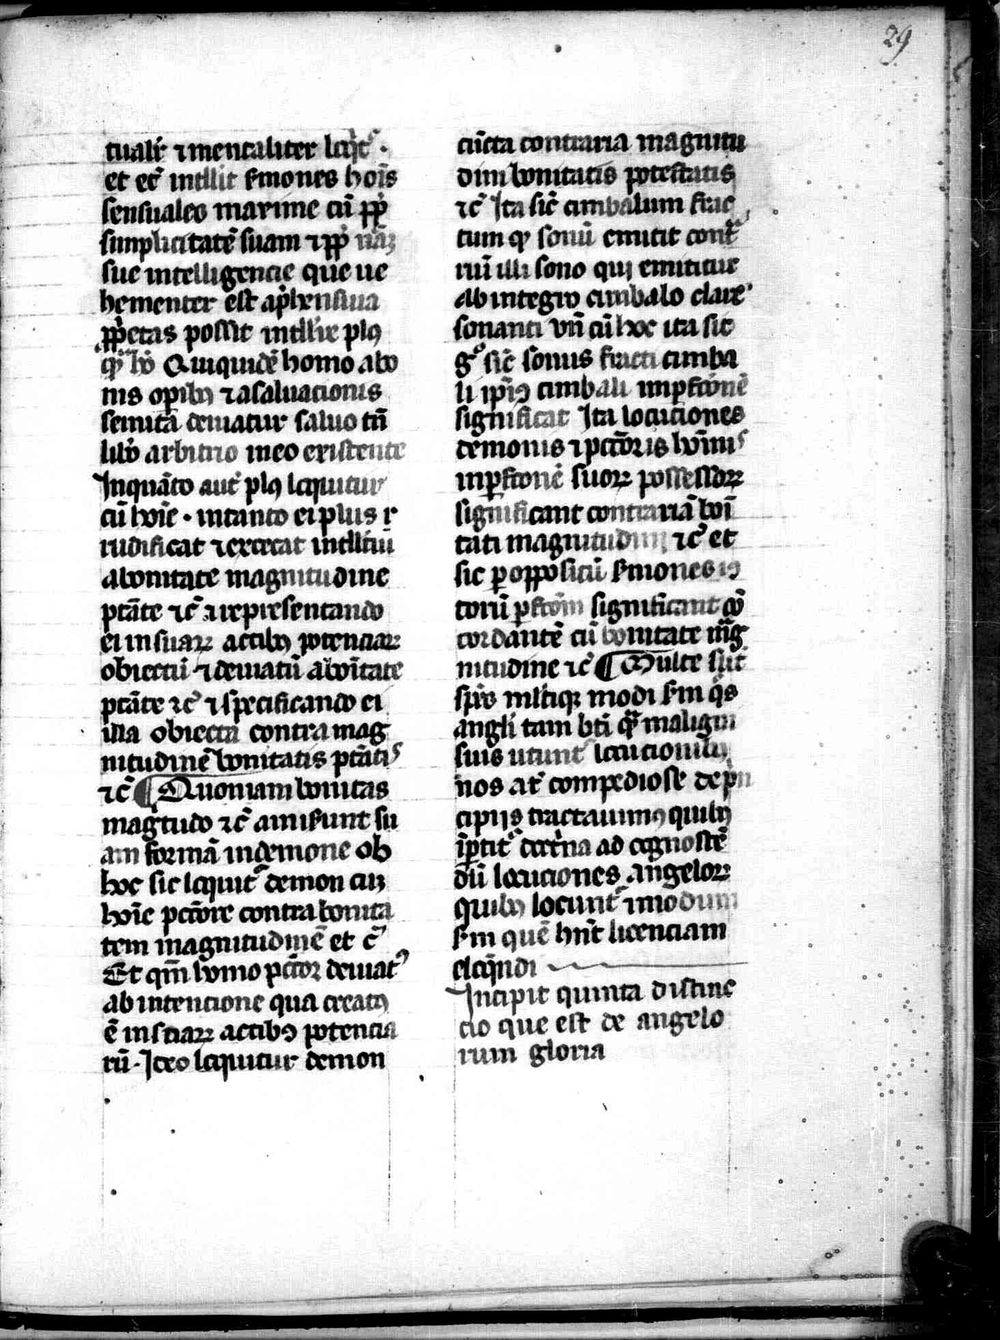 29
tualit᷑ ⁊ mentaliter lꝙit᷑ ·
et ec̄ intllit s̄mones hoı̄s
sensuales maxime cū ꝓp̄
simplicitatē suam ⁊ ꝓp̄ naꝫ
sue intelligencie que ue
hementer est ap̄hensiua
ꝓp̄etas possit intllīe plꝯ
ꝙ̄ hō Quiquidē homo a bo
nis opibꝫ ⁊ a saluacionis
semita deuiatur saluo tn̄
libō arbitrio in eo existente
Inquāto aut̄ plꝯ lꝙuitur
cū hoı̄e · in tanto ei plus r
rudificat ⁊ excecat intllm̄
a bonitate magnitudine
ptāte ⁊c̄ ⁊ representando
ei in suaꝝ actibꝫ potenciaꝝ
obiectū ⁊ deuiatū a boı̄tate
ptāte ⁊c̄ ⁊ specificando ei
illa obiecta contra mag
nitudinē bonitatis ptāti᷑
⁊c̄ ¶ Quoniam bonitas
mag̅tudo ⁊c̄ amis̄unt su
am formā in demone ob
hoc sic lꝙuit᷑ demon cuꝫ
hoı̄e pctōre contra bonita
tem magnitudinē et c̄
Et qm̄ homo pctōr deuiat᷑
ab intencione qua creatꝯ
ē in suaꝝ actibꝫ potencia
rū · Ideo lꝙuitur demon
cūcta contraria magnitu
dini bonitatis potestatis
⁊c̄ Ita sic̄ cimbalum frac
tum ꝙ sonū emitit cont᷑
riū illi sono qui emititur
ab integro cimbalo clare
sonanti Vn̄ cū hoc ita sit
gͦ sic̄ sonus fracti cimba
li ip̄iꝯ cimbali impfc̄onē
significat Ita locuciones
demonis ⁊ pctōris hoı̄nis
inꝑfc̄onē suoꝝ possessoꝝ
significant contrariā boı̄
tati magnitudini ⁊c̄ et
sic ꝑ opposicū s̄mones iꝯ
torū ꝑfc̄om̄ significant cō
cordantē cū bonitate mg̅
nitudine ⁊c̄ ¶ Multe sūt
sp̄es mltiqꝫ modi s̄m q̄s
angli tam bt̄i qͣ maligni
suis utunt᷑ locucionibꝫ
nos at̄ compēdiose de pn
cipijs tractauimꝯ quibꝫ
ip̄tit᷑ dcr̄ina ad cognoscē
dū locuciones angeloꝝ
quibꝫ locunt᷑ ⁊ modum
s̄m quē hn̄t licenciam
elꝙndi
Incipit quinta distinc
cio que est de angelo
rum gloria